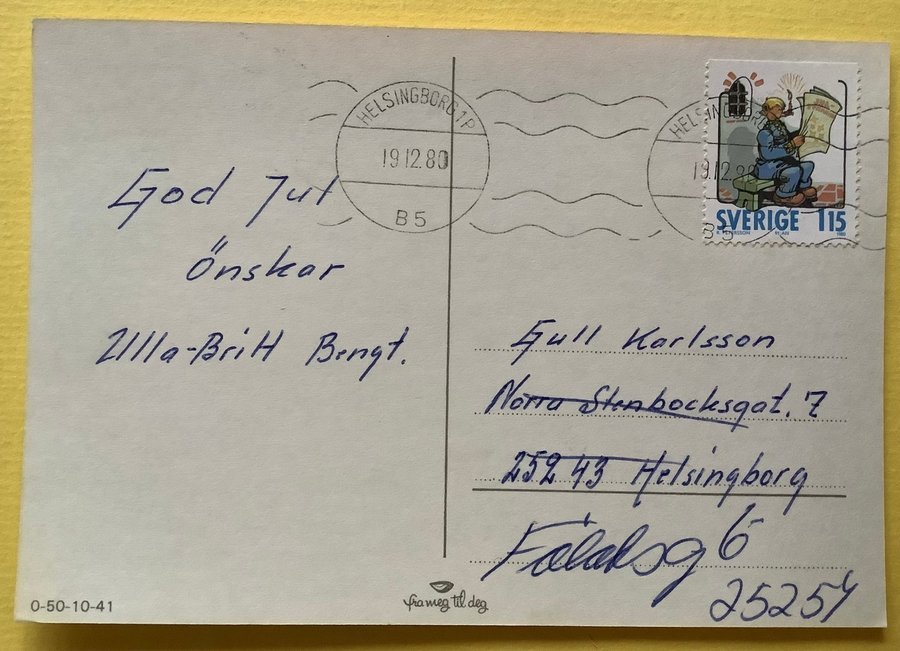 HELSINGBORG 1P
19.12.80
B5
HELSINGBORG
19.12.80
B5
SVERIGE 115
God Jul
Önskar
Ulla-Britt Bengt.
Gull Karlsson
Norra Stenbocksgat. 7
252 43 Helsingborg
6
25254
0-50-10-41
fra meg til deg